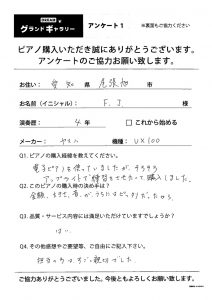 グランドギャラリー アンケート1 ※裏面もご協力ください
ピアノ購入いただき誠にありがとうございます。
アンケートのご協力お願い致します。
お住い: 愛知 県 尾張旭 市
お名前(イニシャル): F. J. 様
演奏歴: 4 年 □ これから始める
メーカー: ヤマハ 機種: UX100
Q1. ピアノの購入経緯を教えてください。
電子ピアノを使用していましたが そろそろ
アップライトで練習をさせたくて購入しました。
Q2. このピアノの購入時の決め手は?
金額、大きさ、音が
Q3. 品質・サービス内容には満足いただけていますでしょうか?
はい
Q4. その他感想やご要望等、ご自由にご記入下さい。
担当の方もすごく親切でした
ご協力ありがとうございました。今後ともよろしくお願い致します。